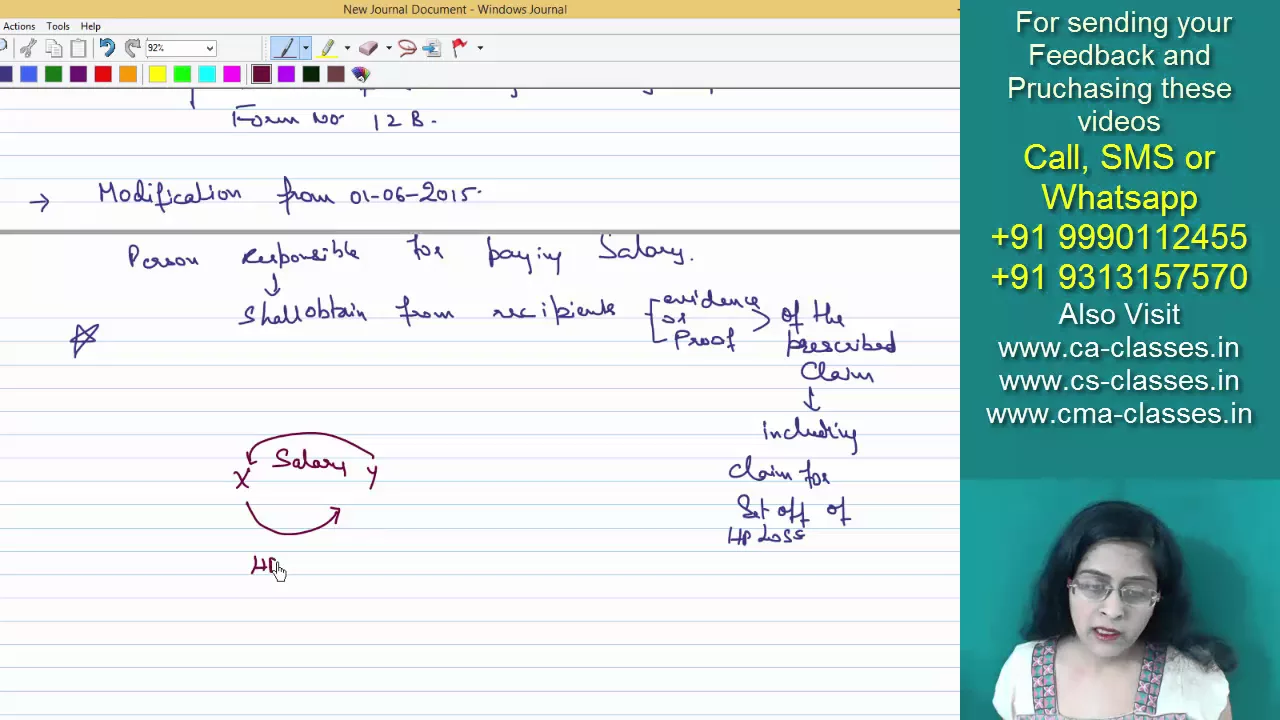 New Journal Document - Windows Journal
Actions Tools Help
92%
Form No 12 B.
→ Modification from 01-06-2015.
Person responsible for paying Salary.
↓
Shall obtain from recipients evidence or Proof of the prescribed Claim
↓
including
Claim for
Set off of
HP Loss
Salary
X Y
HP
For sending your
Feedback and
Pruchasing these
videos
Call, SMS or
Whatsapp
+91 9990112455
+91 9313157570
Also Visit
www.ca-classes.in
www.cs-classes.in
www.cma-classes.in